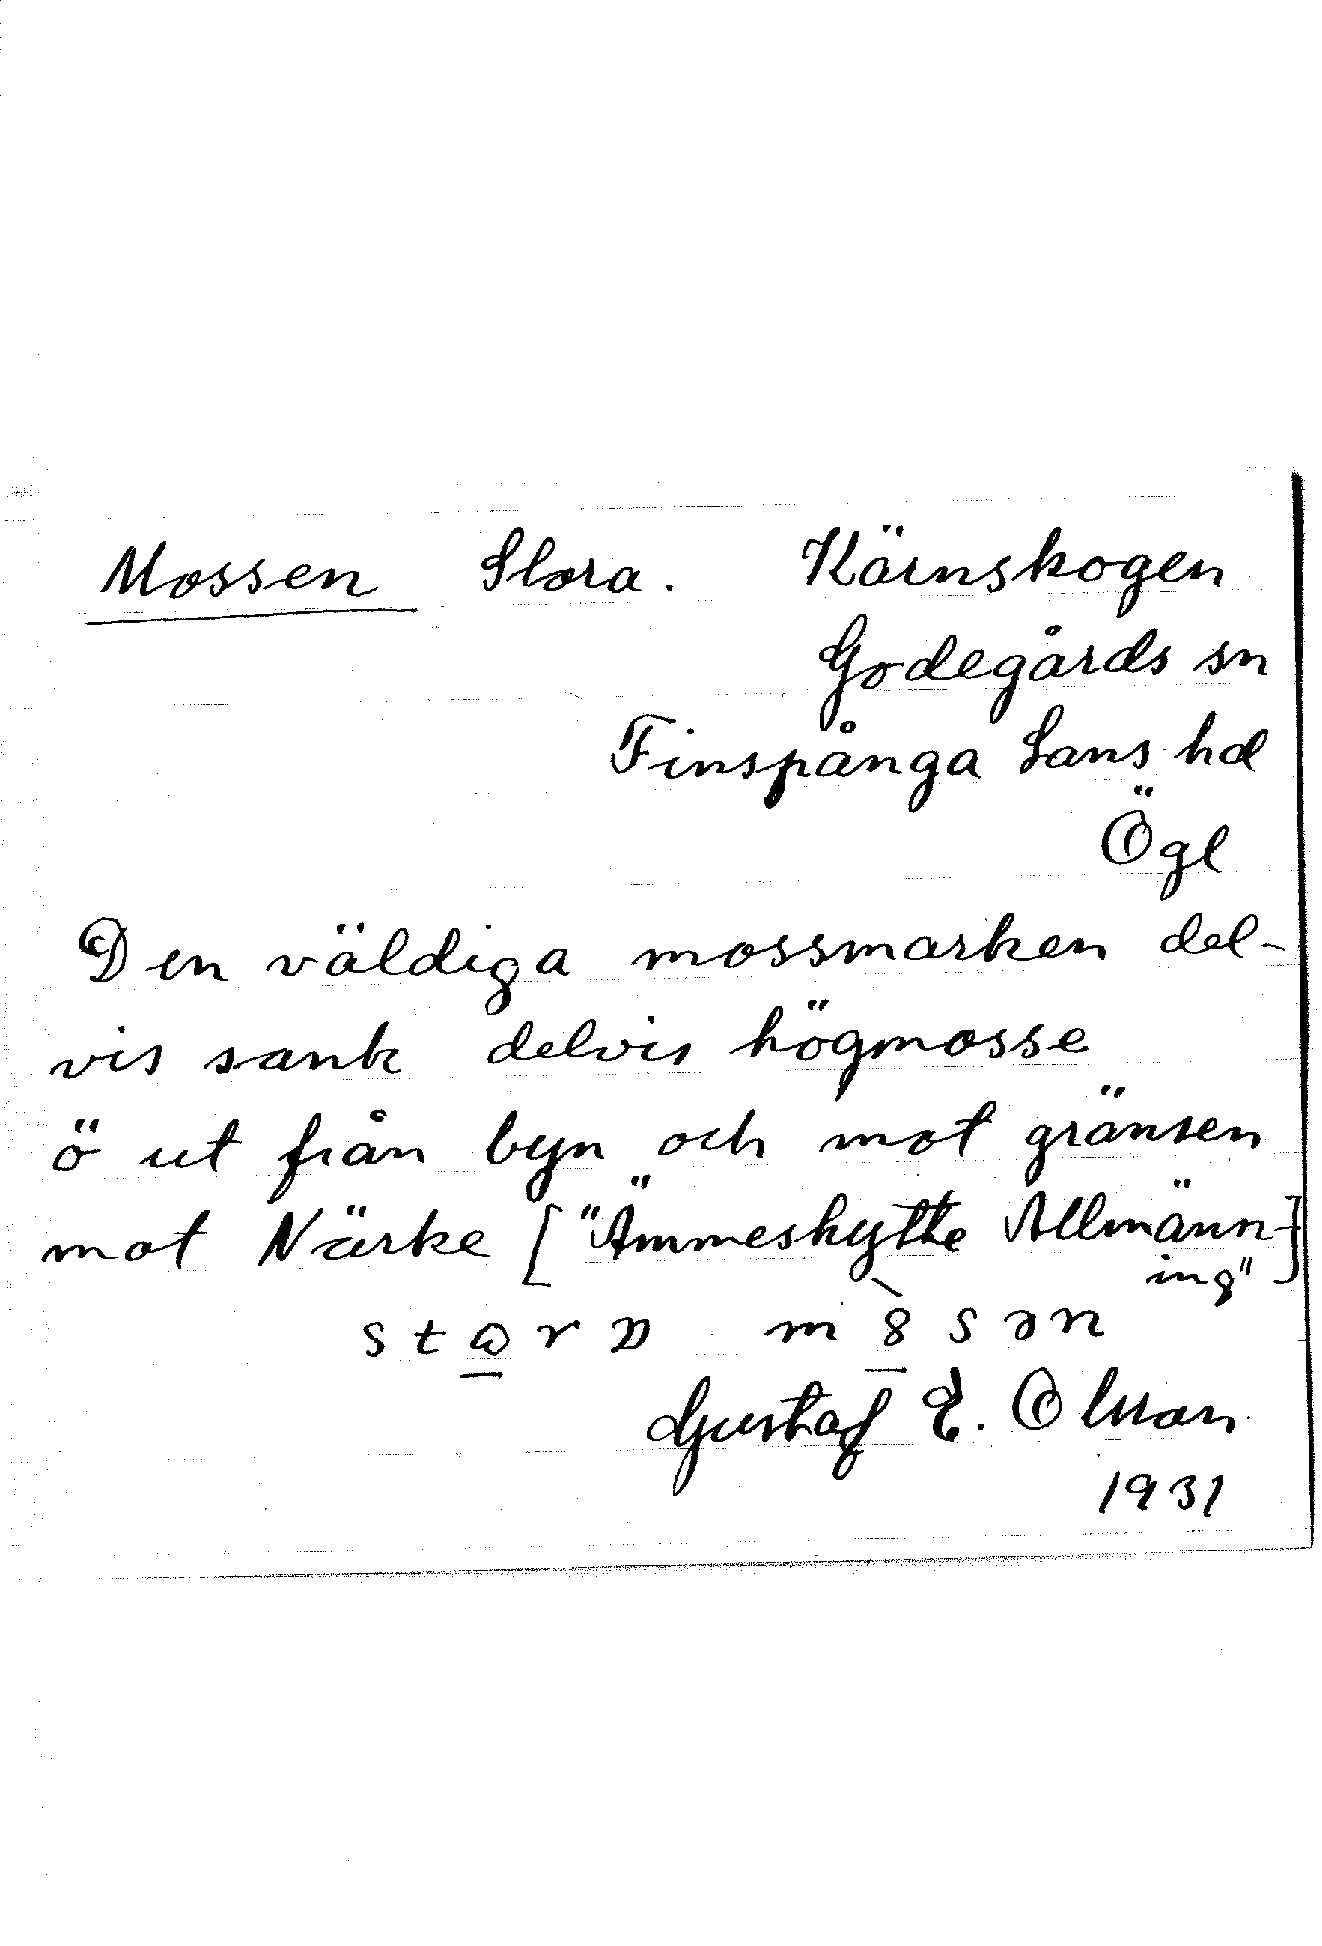 Mossen Stora. Kärnskogen
Godegårds sn
Finspånga Läns hd
Ögl
Den väldiga mossmarken del-
vis sank delvis högmosse
ö ut från byn och mot gränsen
mot Närke ["Ämmeskytte Allmänn-
ing"]
Gustaf E. Olsson
1931